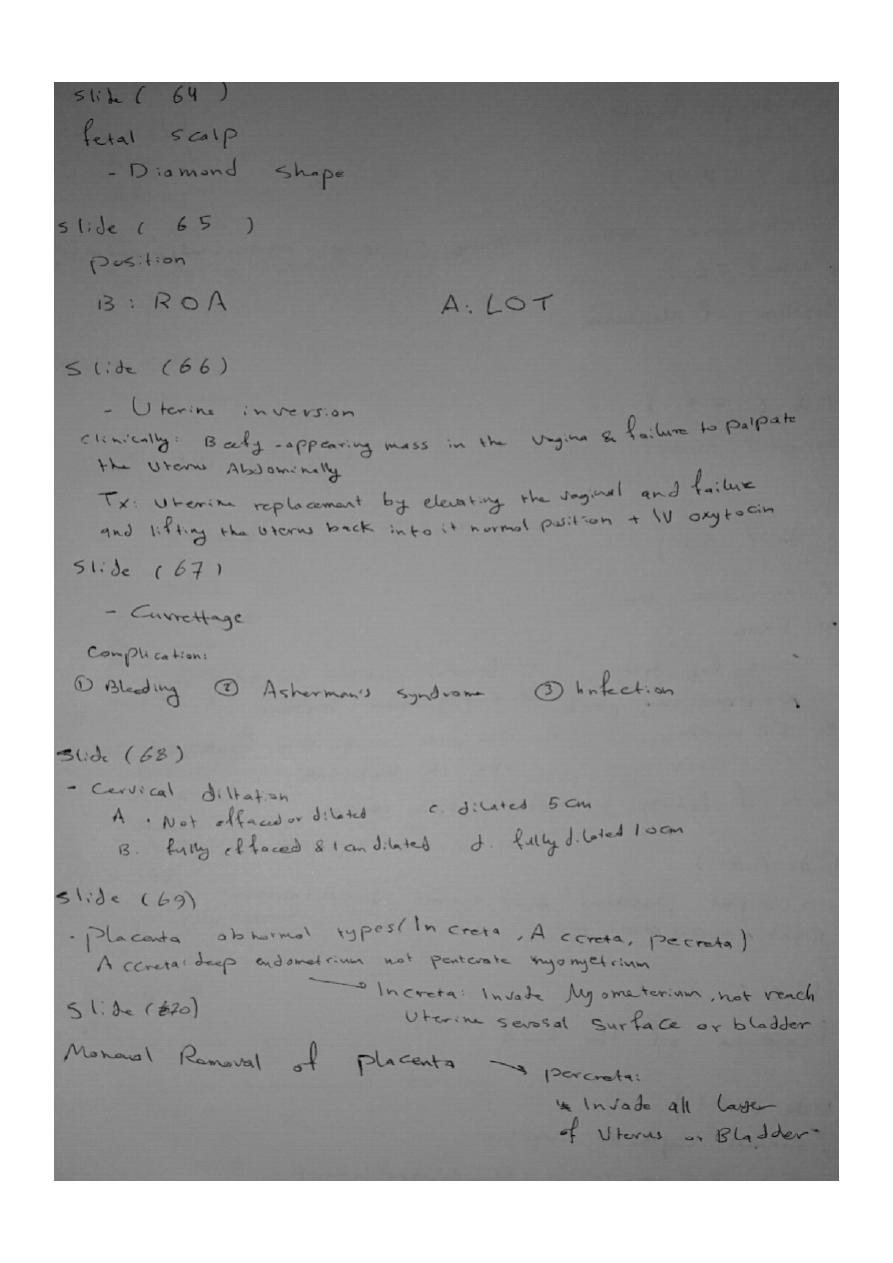 slide ( 64 )
fetal scalp
- Diamond shape
slide ( 65 )
position
B : ROA A: LOT
Slide (66)
- Uterine inversion
Clinically: Beefy-appearing mass in the vagina & failure to palpate
the Uterus Abdominally
Tx: Uterine replacement by elevating the vaginal and failure
and lifting the uterus back into it normal position + IV oxytocin
Slide (67)
- Currettage
Complication:
① Bleeding ② Asherman's syndrome ③ Infection
Slide (68)
- Cervical diltation
A . Not effaced or dilated c. dilated 5 cm
B. fully effaced & 1 cm dilated d. fully dilated 10cm
slide (69)
. placenta abnormal types (In creta, A ccreta, percreta)
Accreta: deep endometrium not pentcrate myometrium
→ Increta: Invade Myometerium, not reach
Uterine serosal surface or bladder
Slide (70)
Manual Removal of placenta → percreta:
* Invade all layer
of Uterus or Bladder